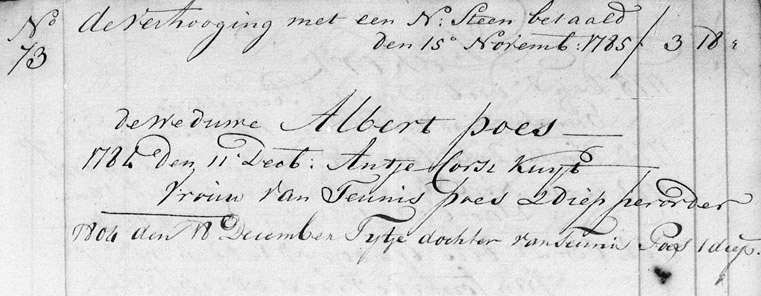 No de verhooging met een No: Steen betaald
73 den 15o Novemb: 1785 / 3 18 "
de weduwe Albert Poes —
1784 den 11 Decb: Antje Corse Kuyt
Vrouw van Teunis Poes 2 diep per order
1804 den 18 December Tytje dochter van Teunis Poes 1 diep.